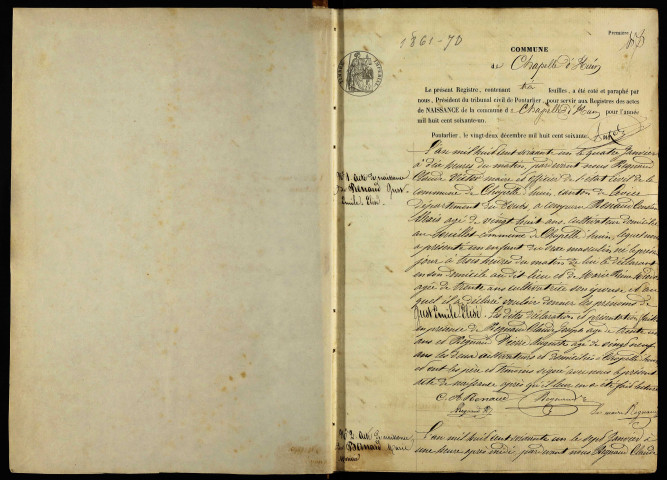 1861-70
Première
COMMUNE
de Chapelle d'Huin
Le présent Registre, contenant six feuilles, a été coté et paraphé par
nous, Président du tribunal civil de Pontarlier, pour servir aux Registres des actes
de NAISSANCE de la commune de Chapelle d'Huin pour l'année
mil huit cent soixante-un.
Pontarlier, le vingt-deux décembre mil huit cent soixante.
N° 1. Acte de naissance
de Renaud Just
Emile Elisé.
L'an mil huit cent soixante un le quatre janvier
à dix heures du matin, par devant nous Regnaud
Claude Victor maire et officier de l'état civil de la
commune de Chapelle d'huin, canton de Levier
département du Doubs a comparu Renaud
agé de vingt huit ans, cultivateur domicilié
au commune de Chapelle d'huin, lequel nous
a présenté un enfant du sexe masculin né le présent
jour à trois heures du matin de lui le déclarant
en son domicile au dit lieu et de Marie
agée de trente ans cultivatrice son épouse, et au
quel il a déclaré vouloir donner les prénoms de
Just Emile Elisé. Les dites déclaration et présentation faites
en présence de Regnaud Claude Joseph agé de trente
ans et Regnaud Pierre Auguste agé de vingt neuf
ans les deux cultivateurs et domiciliés à Chapelle d'huin
et ont les père et témoins signé avec nous le présent
acte de naissance après qu'il leur en a été fait lecture
C. A. Renaud Regnaud Le maire Regnaud
Regnaud
N° 2. Acte de naissance
de Renaud Marie
L'an mil huit cent soixante un le sept janvier à
une heure après midi, par devant nous Regnaud Claude